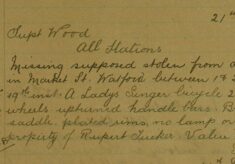 21st
Supt Wood
All Stations
Missing supposed stolen from a
in Market St. Watford between 1 &
19th inst. A Ladys Singer bicycle 2
wheels upturned handle bars. B
saddle plated rims, no lamp or
property of Rupert Tucker. Value